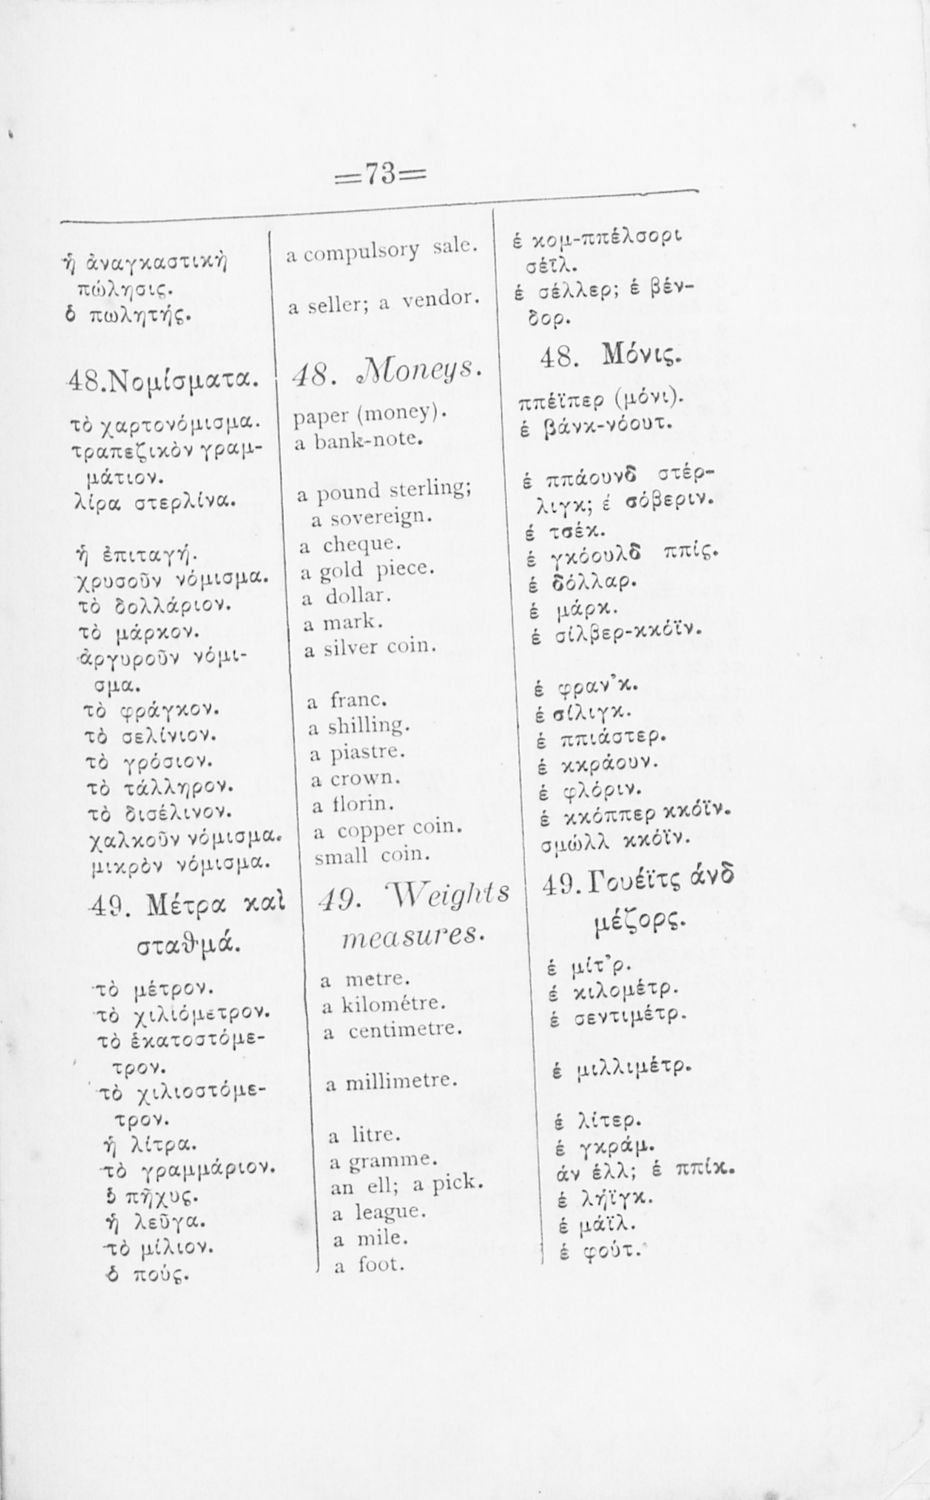 =73=
ἡ ἀναγκαστικὴ
πώλησις.
ὁ πωλητής.
48.Νομίσματα.
τὸ χαρτονόμισμα.
τραπεζικὸν γραμ-
μάτιον.
λίρα στερλίνα.
ἡ ἐπιταγή.
χρυσοῦν νόμισμα.
τὸ δολλάριον.
τὸ μάρκον.
ἀργυροῦν νόμι-
σμα.
τὸ φράγκον.
τὸ σελίνιον.
τὸ γρόσιον.
τὸ τάλληρον.
τὸ δισέλινον.
χαλκοῦν νόμισμα.
μικρὸν νόμισμα.
49. Μέτρα καὶ
σταθμά.
τὸ μέτρον.
τὸ χιλιόμετρον.
τὸ ἑκατοστόμε-
τρον.
τὸ χιλιοστόμε-
τρον.
ἡ λίτρα.
τὸ γραμμάριον.
ὁ πῆχυς.
ἡ λεῦγα.
τὸ μίλιον.
ὁ πούς.
a compulsory sale.
a seller; a vendor.
48. Moneys.
paper (money).
a bank-note.
a pound sterling;
a sovereign.
a cheque.
a gold piece.
a dollar.
a mark.
a silver coin.
a franc.
a shilling.
a piastre.
a crown.
a florin.
a copper coin.
small coin.
49. Weights
measures.
a metre.
a kilométre.
a centimetre.
a millimetre.
a litre.
a gramme.
an ell; a pick.
a league.
a mile.
a foot.
ἐ κομ-ππέλσορι
σέϊλ.
ἐ σέλλερ; ἐ βέν-
δορ.
48. Μόνις.
ππέϊπερ (μόνι).
ἐ βάνκ-νόουτ.
ἐ ππάουνδ στέρ-
λιγκ; ἐ σόβεριν.
ἐ τσέκ.
ἐ γκόουλδ ππίς.
ἐ δόλλαρ.
ἐ μάρκ.
ἐ σίλβερ-κκόϊν.
ἐ φραν᾿κ.
ἐ σίλιγκ.
ἐ ππιάστερ.
ἐ κκράουν.
ἐ φλόριν.
ἐ κκόππερ κκόϊν.
σμώλλ κκόϊν.
49.Γουέϊτς άνδ
μέζορς.
ἐ μίτ᾿ρ.
ἐ κιλομέτρ.
ἐ σεντιμέτρ.
ἐ μιλλιμέτρ.
ἐ λίτερ.
ἐ γκράμ.
άν έλλ; ἐ ππίκ.
ἐ λήϊγκ.
ἐ μάϊλ.
ἐ φούτ.